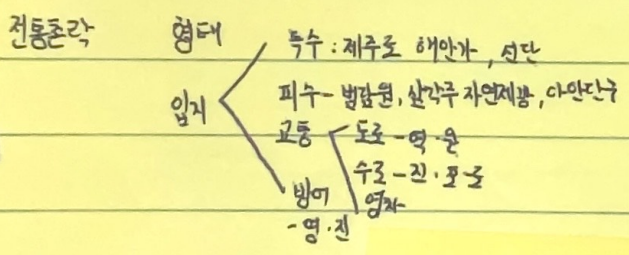 전통촌락 형태
입지
득수 : 제주도 해안가, 선단
피수 - 범람원, 삼각주 자연제방, 하안단구
교통
도로 - 역·원
수로 - 진·포·도
영자
방어
- 영·진